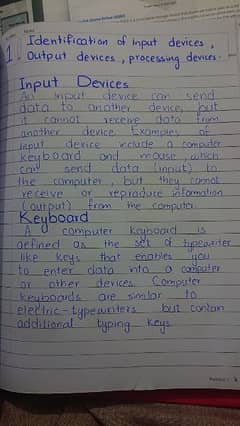 1. Identification of input devices,
Output devices, processing devices.
Input Devices
An input device can send
data to another device, but
it cannot receive data from
another device. Examples of
input device include a computer
keyboard and mouse, which
can send data (input) to
the computer, but they cannot
receive or reproduce information
(output) from the computer.
Keyboard
A computer keyboard is
defined as the set of typewriter
like keys that enables you
to enter data into a computer
or other devices. Computer
keyboards are similar to
electric-typewriters but contain
additional typing keys